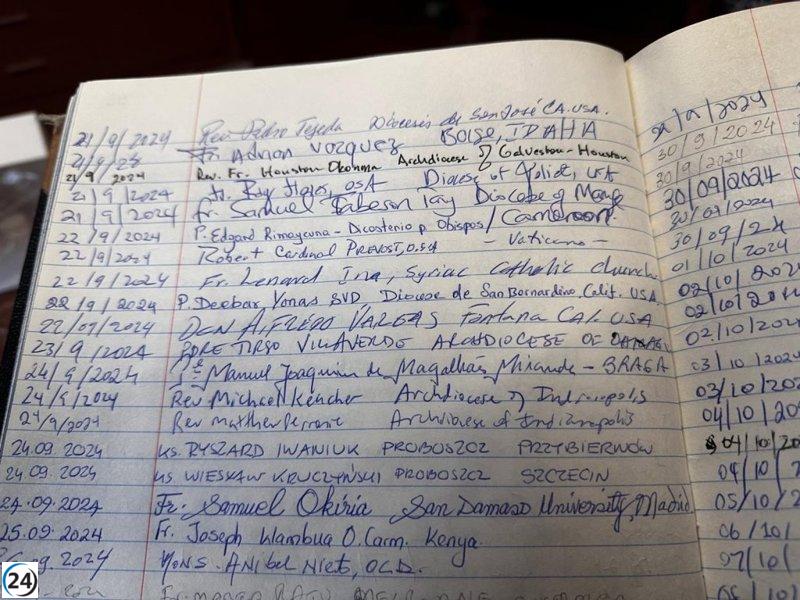 21/9/2024 Rev. Pedro Tejeda Diocesis de San José CA. USA.
21/9/24 Fr. Adrian Vazquez BOISE, IDAHA
21/9/2024 Rev. Fr. Houston Okonma Archdiocese of Galveston-Houston
21/9/2024 OSA Diocese of Joliet, USA
21/9/2024 Fr. Samuel Diocese of
22/9/2024 P. Edgard Rimaycuna - Dicasterio p Obispos / Cameroon
22/9/2024 Robert Cardinal PREVOST, O.S.A - Vaticano -
22/9/2024 Fr. Lenard Ina, Syriac Catholic church
22/9/2024 P. Deebar Yonas SVD, Diocese de San Bernardino, Calif. USA
22/09/2024 DON ALFREDO VARGAS Fontana CAL USA
23/9/2024 TIRSO VILLAVERDE ARCHDIOCESE OF
24/9/2024 Manuel Joaquim de Magalhães Miranda - BRAGA
24/9/2024 Rev Michael Keucher Archdiocese of Indianapolis
24/9/2024 Rev Matthew Perronie Archdiocese of Indianapolis
24.09.2024 ks. RYSZARD IWANIUK PROBOSZCZ PRZYBIERNÓW
24.09.2024 ks WIESŁAW KRUCZYŃSKI PROBOSZCZ SZCZECIN
24.09.2024 Fr. Samuel Okiria San Damaso University, Madrid
25.09.2024 Fr. Joseph Wambua O.Carm. Kenya
09.2024 MONS. ANIBEL Nieto, OCD.
30/9/2024
30/9/2024
30/09/2024
30/09/2024
30/09/24
01/10/2024
02/10/202
02/10/20
02/10/202
03/10/2024
03/10/20
04/10/20
04/10/20
04/10/
05/10/2
06/10/
07/10/
24